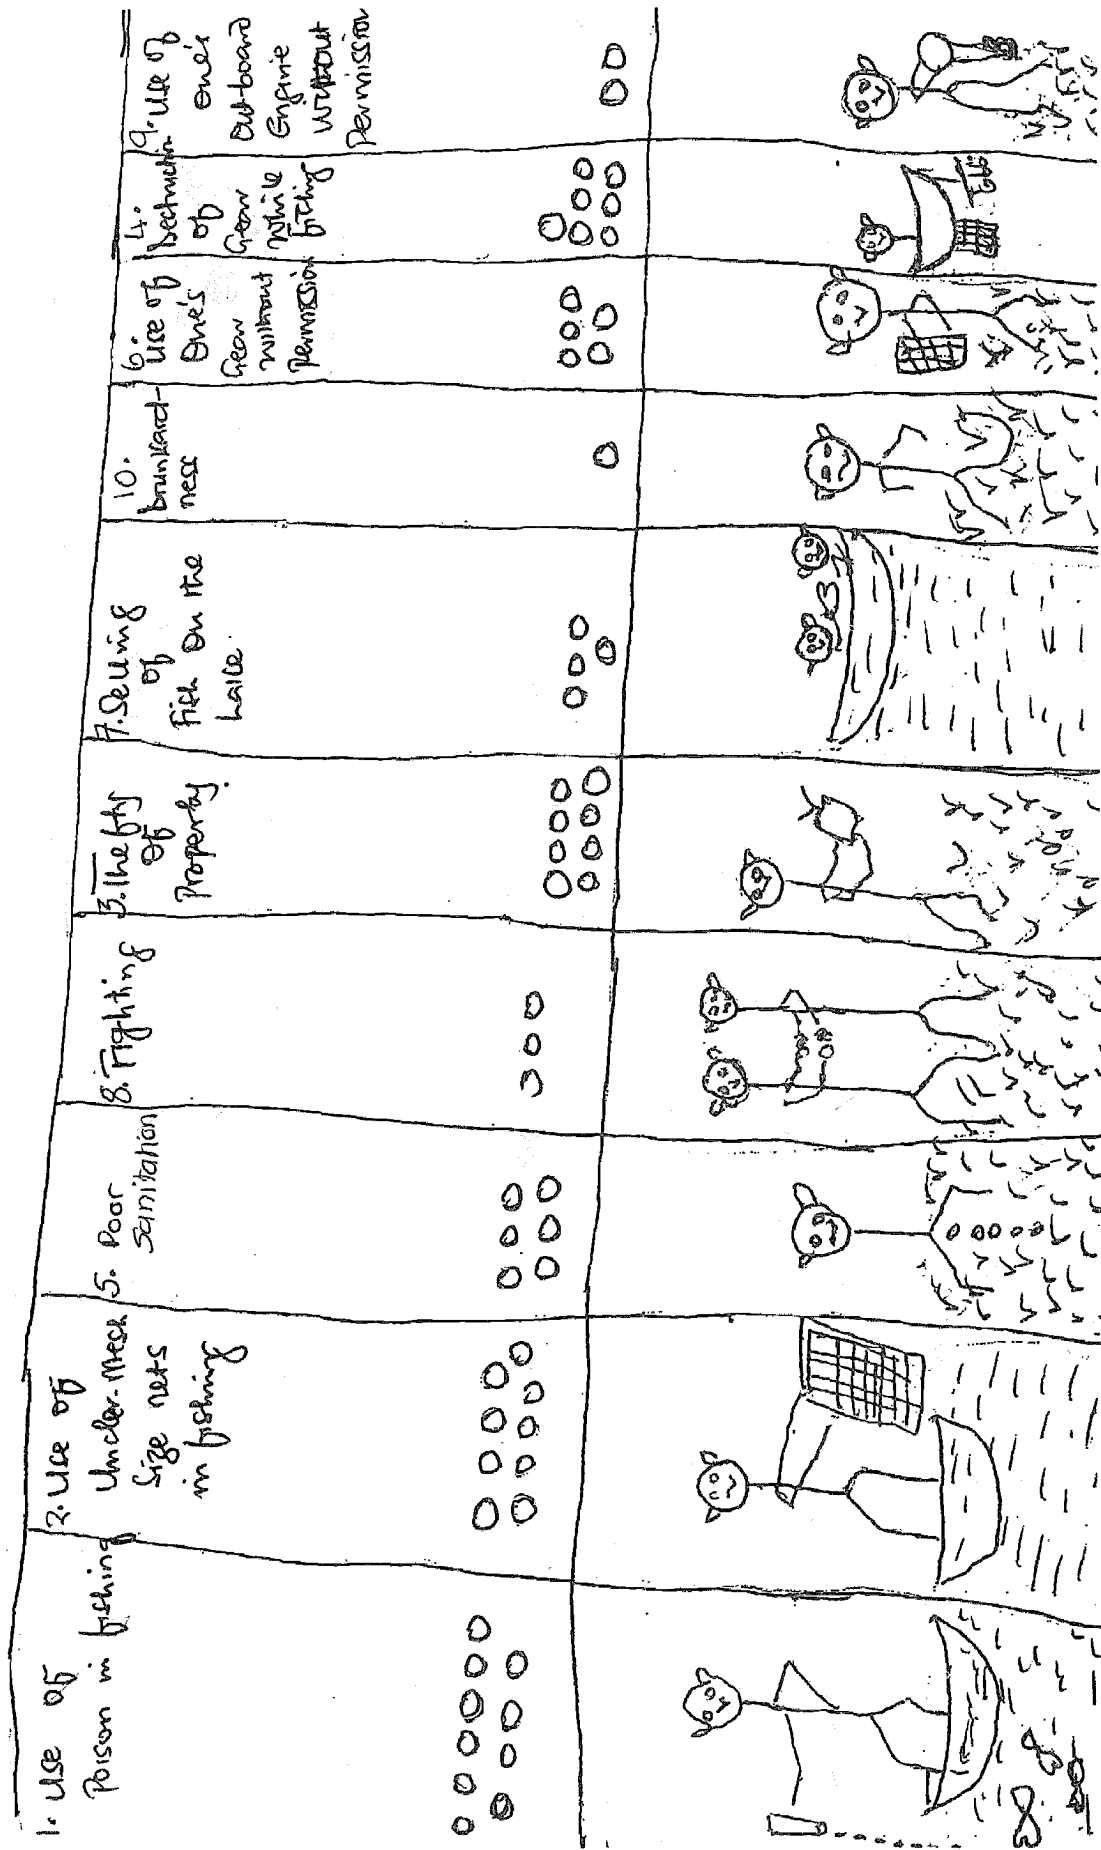 1. Use of
Poison in fishing
2. Use of
Under-Mesh
Size nets
in fishing
5. Poor
Sanitation
8. Fighting
3. Thefty
of
Property.
7. Selling
of
Fish on the
Lake.
10.
Drunkard-
ness
6.
Use of
One's
Gear
without
Permission
4.
of
Gear
while
9. Use of
one's
Out-board
Engine
without
Permission